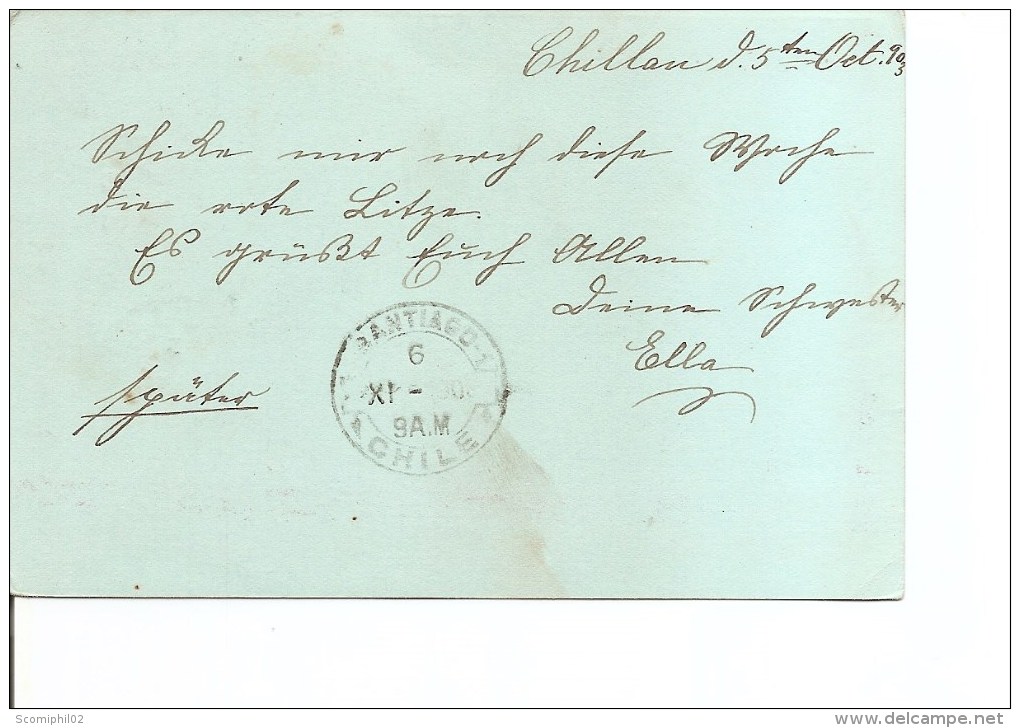 Chillan d. 5ten Oct. 903
Schicke mir noch diese Woche
die rote Litze.
Es grüßt Euch Allen
Deine Schwester
Ella
später
SANTIAGO-1
6
XI - 
9 A.M
CHILE
Scomiphil02
www.delcampe.net